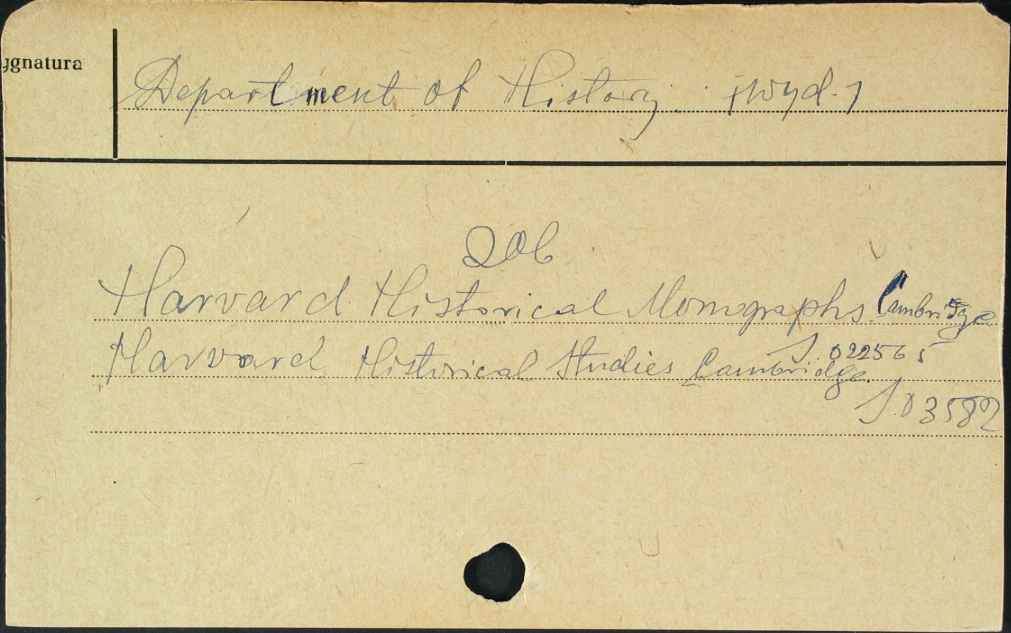 ygnatura
Department of History. [wyd.]
Zob.
Harvard Historical Monographs. Cambridge
S. 022565
Harvard Historical Studies Cambridge.
S. 03582